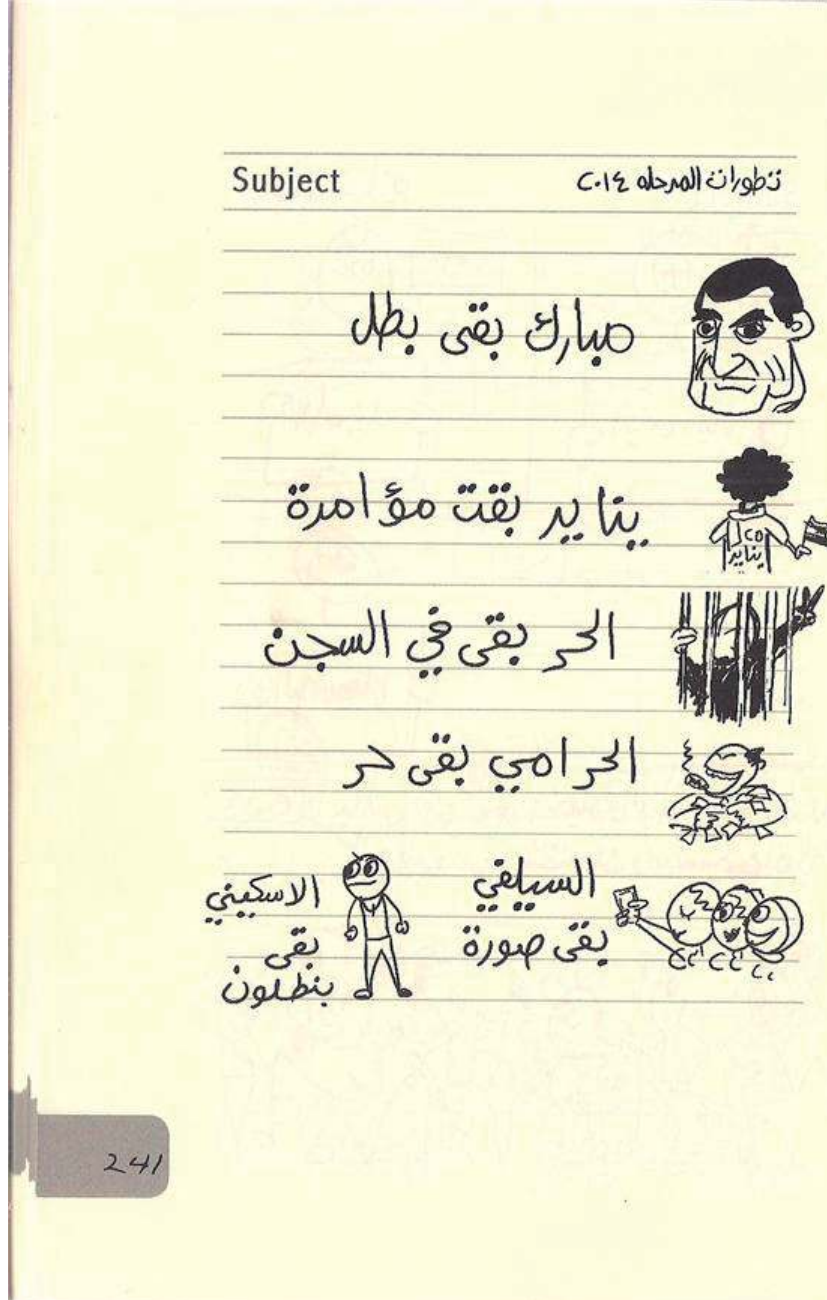 Subject
تطورات المرحله ٢٠١٤
مبارك بقى بطل
يناير بقت مؤامرة
يناير
الحر بقى في السجن
الحرامي بقى حر
السيلفي
بقى صورة
الاسكيني
بقى
بنطلون
241